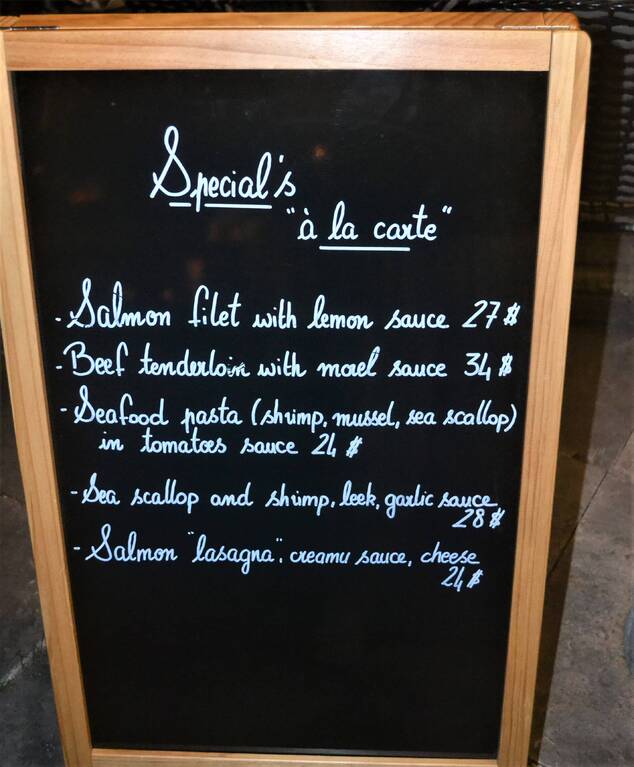 Special's
"à la carte"
- Salmon filet with lemon sauce 27 $
- Beef tenderloin with morel sauce 34 $
- Seafood pasta (shrimp, mussel, sea scallop)
in tomatoes sauce 24 $
- Sea scallop and shrimp, leek, garlic sauce
28 $
- Salmon "lasagna", creamy sauce, cheese
24 $